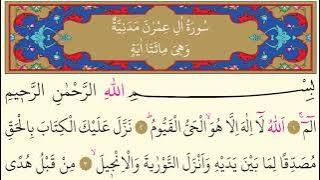 سُورَةُ اٰلِ عِمْرٰنَ مَدَنِيَّةٌ
وَهِيَ مِائَتَا اٰيَةٍ
بِسْمِ اللّٰهِ الرَّحْمٰنِ الرَّحِيمِ
الٓمٓ ﴿١﴾ اَللّٰهُ لَٓا اِلٰهَ اِلَّا هُوَۙ الْحَيُّ الْقَيُّومُۜ ﴿٢﴾ نَزَّلَ عَلَيْكَ الْكِتَابَ بِالْحَقِّ
مُصَدِّقًا لِمَا بَيْنَ يَدَيْهِ وَاَنْزَلَ التَّوْرٰيةَ وَالْاِنْج۪يلَۙ ﴿٣﴾ مِنْ قَبْلُ هُدًى